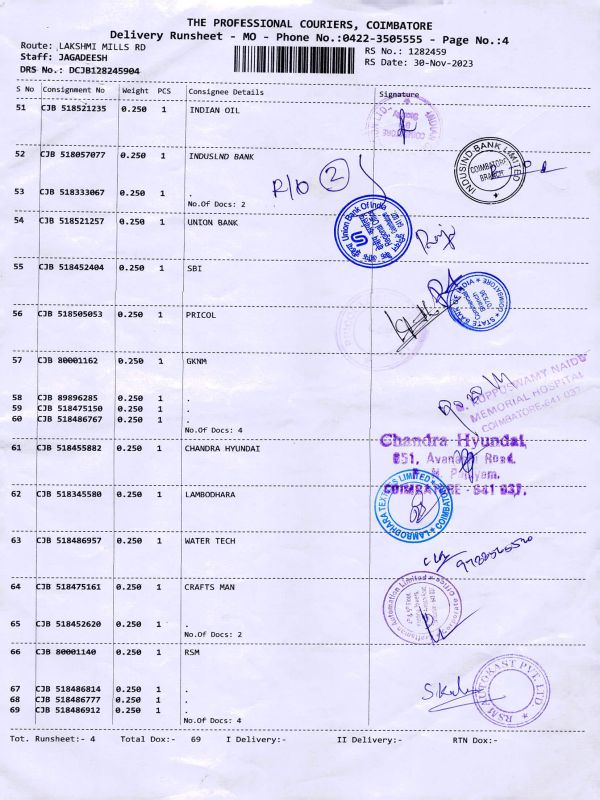 THE PROFESSIONAL COURIERS, COIMBATORE
Delivery Runsheet - MO - Phone No.:0422-3505555 - Page No.:4
Route: LAKSHMI MILLS RD
RS No.: 1282459
Staff: JAGADEESH
RS Date: 30-Nov-2023
DRS No.: DCJB128245904
S No Consignment No Weight PCS Consignee Details Signature
51 CJB 518521235 0.250 1 INDIAN OIL
52 CJB 518057077 0.250 1 INDUSLND BANK
INDUSIND BANK LIMITED
COIMBATORE
BRANCH
R/O 2
53 CJB 518333067 0.250 1 .
No.Of Docs: 2
54 CJB 518521257 0.250 1 UNION BANK
Union Bank Of India
55 CJB 518452404 0.250 1 SBI
STATE BANK OF INDIA
COIMBATORE
56 CJB 518505053 0.250 1 PRICOL
57 CJB 80001162 0.250 1 GKNM
G. KUPPUSWAMY NAIDU
MEMORIAL HOSPITAL
COIMBATORE-641 037
58 CJB 89896285 0.250 1 .
59 CJB 518475150 0.250 1 .
60 CJB 518486767 0.250 1 .
No.Of Docs: 4
61 CJB 518455882 0.250 1 CHANDRA HYUNDAI
Chandra Hyundai,
Road.
COIMBATORE - 641 037.
62 CJB 518345580 0.250 1 LAMBODHARA
LAMBODHARA TEXTILES LIMITED
COIMBATORE
63 CJB 518486957 0.250 1 WATER TECH
64 CJB 518475161 0.250 1 CRAFTS MAN
Craftsman Automation Limited
65 CJB 518452620 0.250 1 .
No.Of Docs: 2
66 CJB 80001140 0.250 1 RSM
RSM AUTOKAST PVT. LTD.
67 CJB 518486814 0.250 1 .
68 CJB 518486777 0.250 1 .
69 CJB 518486912 0.250 1 .
No.Of Docs: 4
Tot. Runsheet:- 4 Total Dox:- 69 I Delivery:- II Delivery:- RTN Dox:-